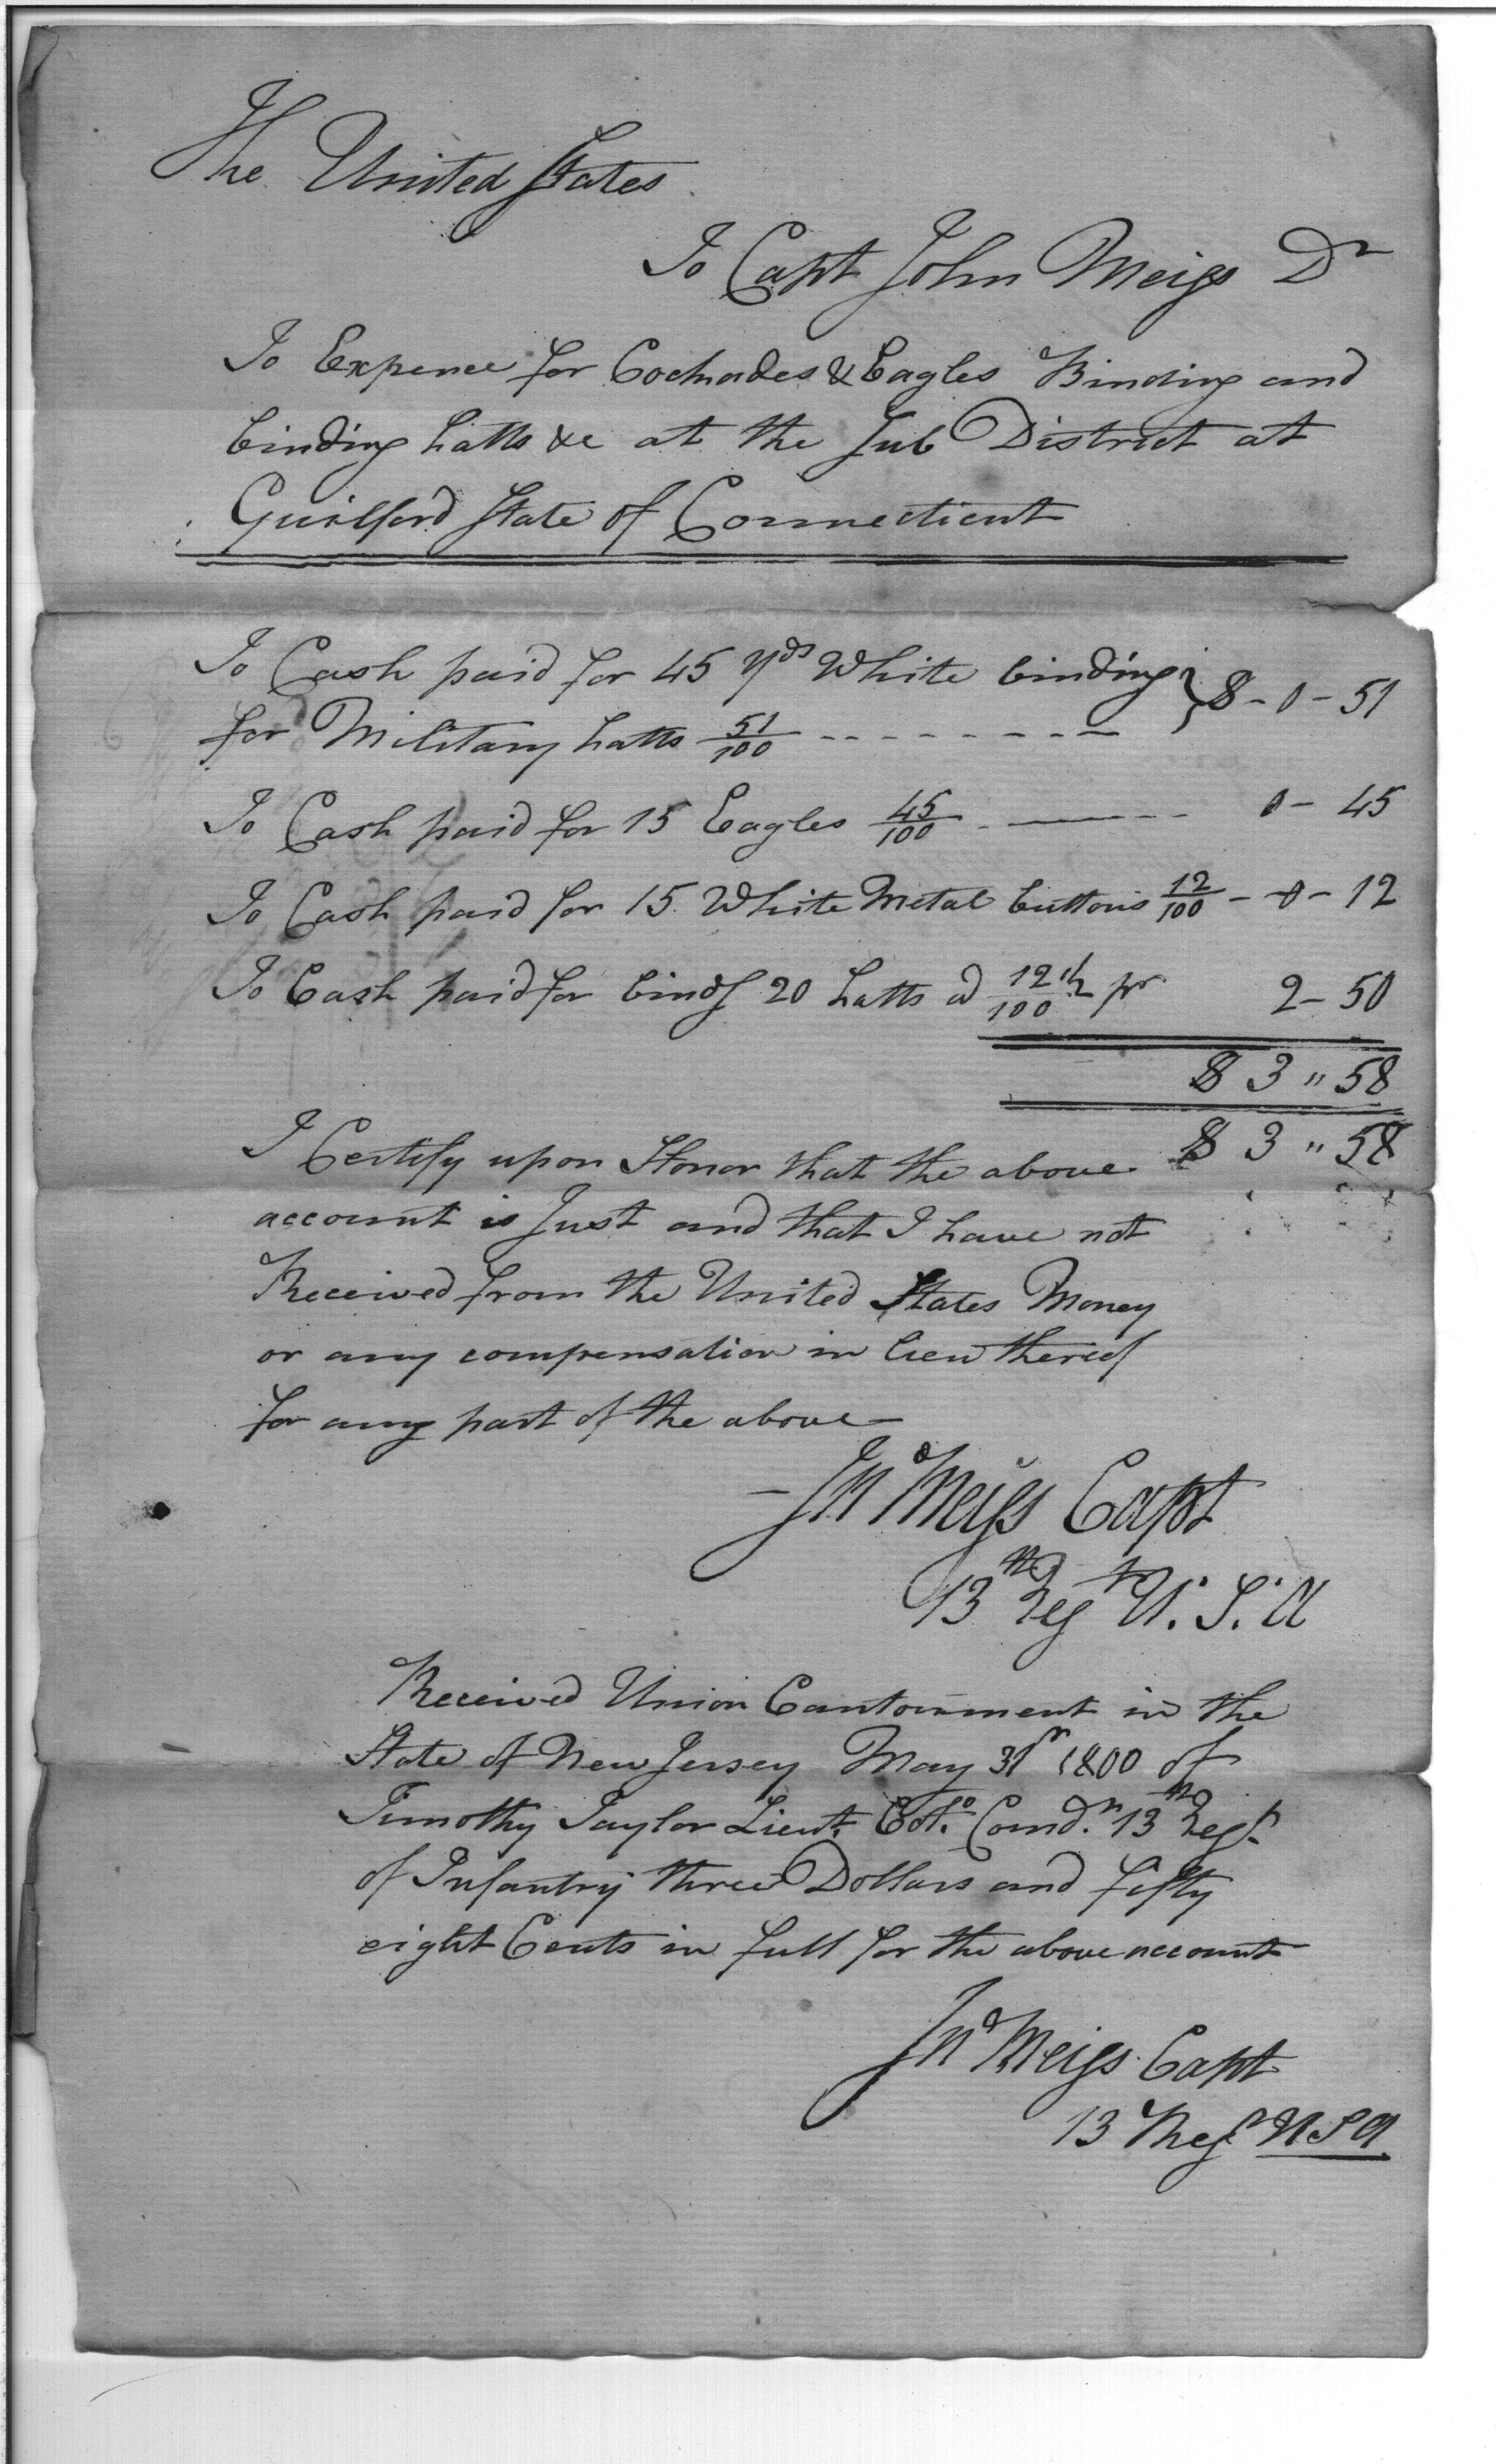 The United States
To Capt John Meigs Dr
To Expence for Cockades & Eagles Binding and
binding hatts &c at the Sub District at
Guilford State of Connecticut
To Cash paid for 45 Yds White binding } $ - 0 - 51
for Military hatts 51/100 - - - - - - - -
To Cash paid for 15 Eagles 45/100 - —— - - 0 - 45
To Cash paid for 15 White Metal buttons 12/100 - 0 - 12
To Cash paid for bindg 20 hatts @ 12 1/2/100 pr 2 - 50
$ 3 " 58
$ 3 " 58
I Certify upon Honor that the above
account is Just and that I have not
Received from the United States Money
or any compensation in lieu thereof
for any part of the above —
Jno Meigs Capt
13th Regt U. S. A
Received Union Cantonment in the
State of New Jersey May 31st 1800 of
Timothy Taylor Lieut. Colo. Comdt. 13th Regt.
of Infantry three Dollars and fifty
eight Cents in full for the above account
Jno Meigs Capt
13 Regt USA